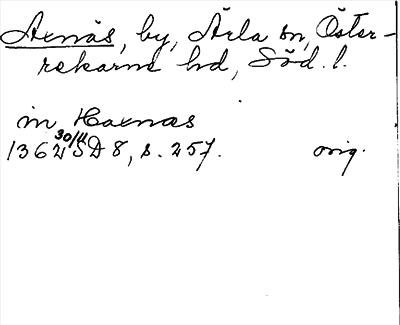 Aenäs, by, Ärla sn, Öster-
rekarne hd, Söd. l.
in Haenæs
1362 30/11 SD 8, s. 257. orig.